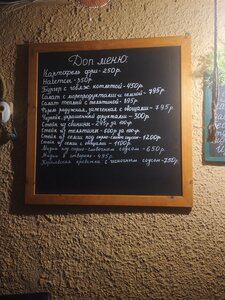 Доп меню:
Картофель фри - 250р.
Наггетсы - 350р.
Бургер с говяж. котлетой - 450р.
Салат с морепродуктами и семгой - 795р.
Салат теплый с телятиной - 595р.
Форель радужная, запеченая с овощами - 795р.
Чизкейк, украшенный фруктами - 300р.
Стейк из свинины - 245 за 100гр.
Стейк из телятины - 600р за 100гр.
Стейк из семги под сырно-слив. соусом - 1200р
Стейк из семги с овощами - 1100р.
Мидии под сырно-сливочным соусом - 650р.
Мидии в створках - 495р.
Королевские креветки с чесночным соусом - 750р.